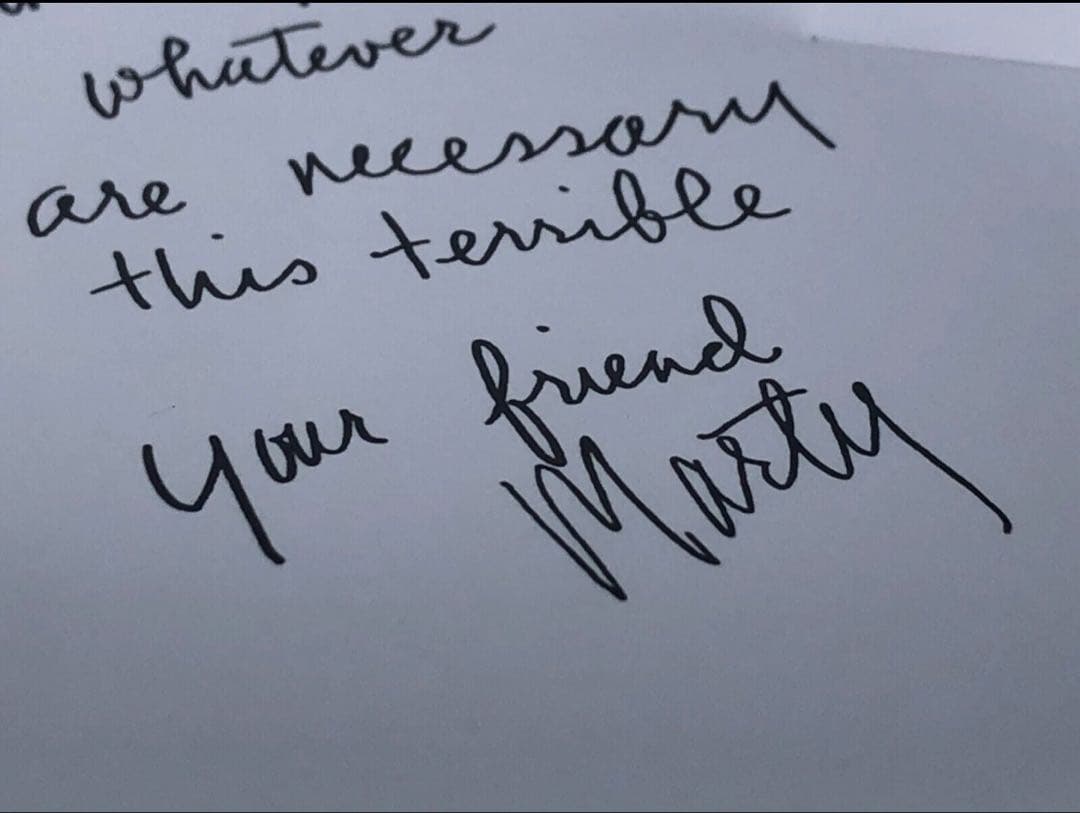 whatever
are necessary
this terrible
your friend
Marty